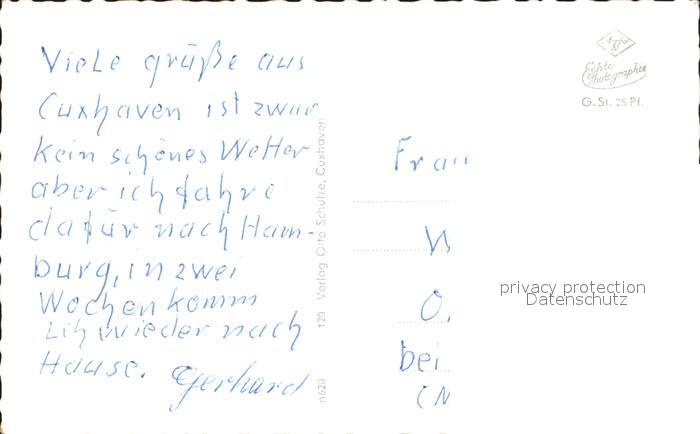 Viele grüße aus
Cuxhaven ist zwar
kein schönes Wetter
aber ich fahre
dafür nach Ham-
burg, in zwei
Wochen komm
ich wieder nach
Hause. Gerhard
120 Verlag Otto Schulze, Cuxhaven
n620
Echte
Photographie
G. St. 25 Pf.
Frau
W
O.
bei
(N
privacy protection
Datenschutz